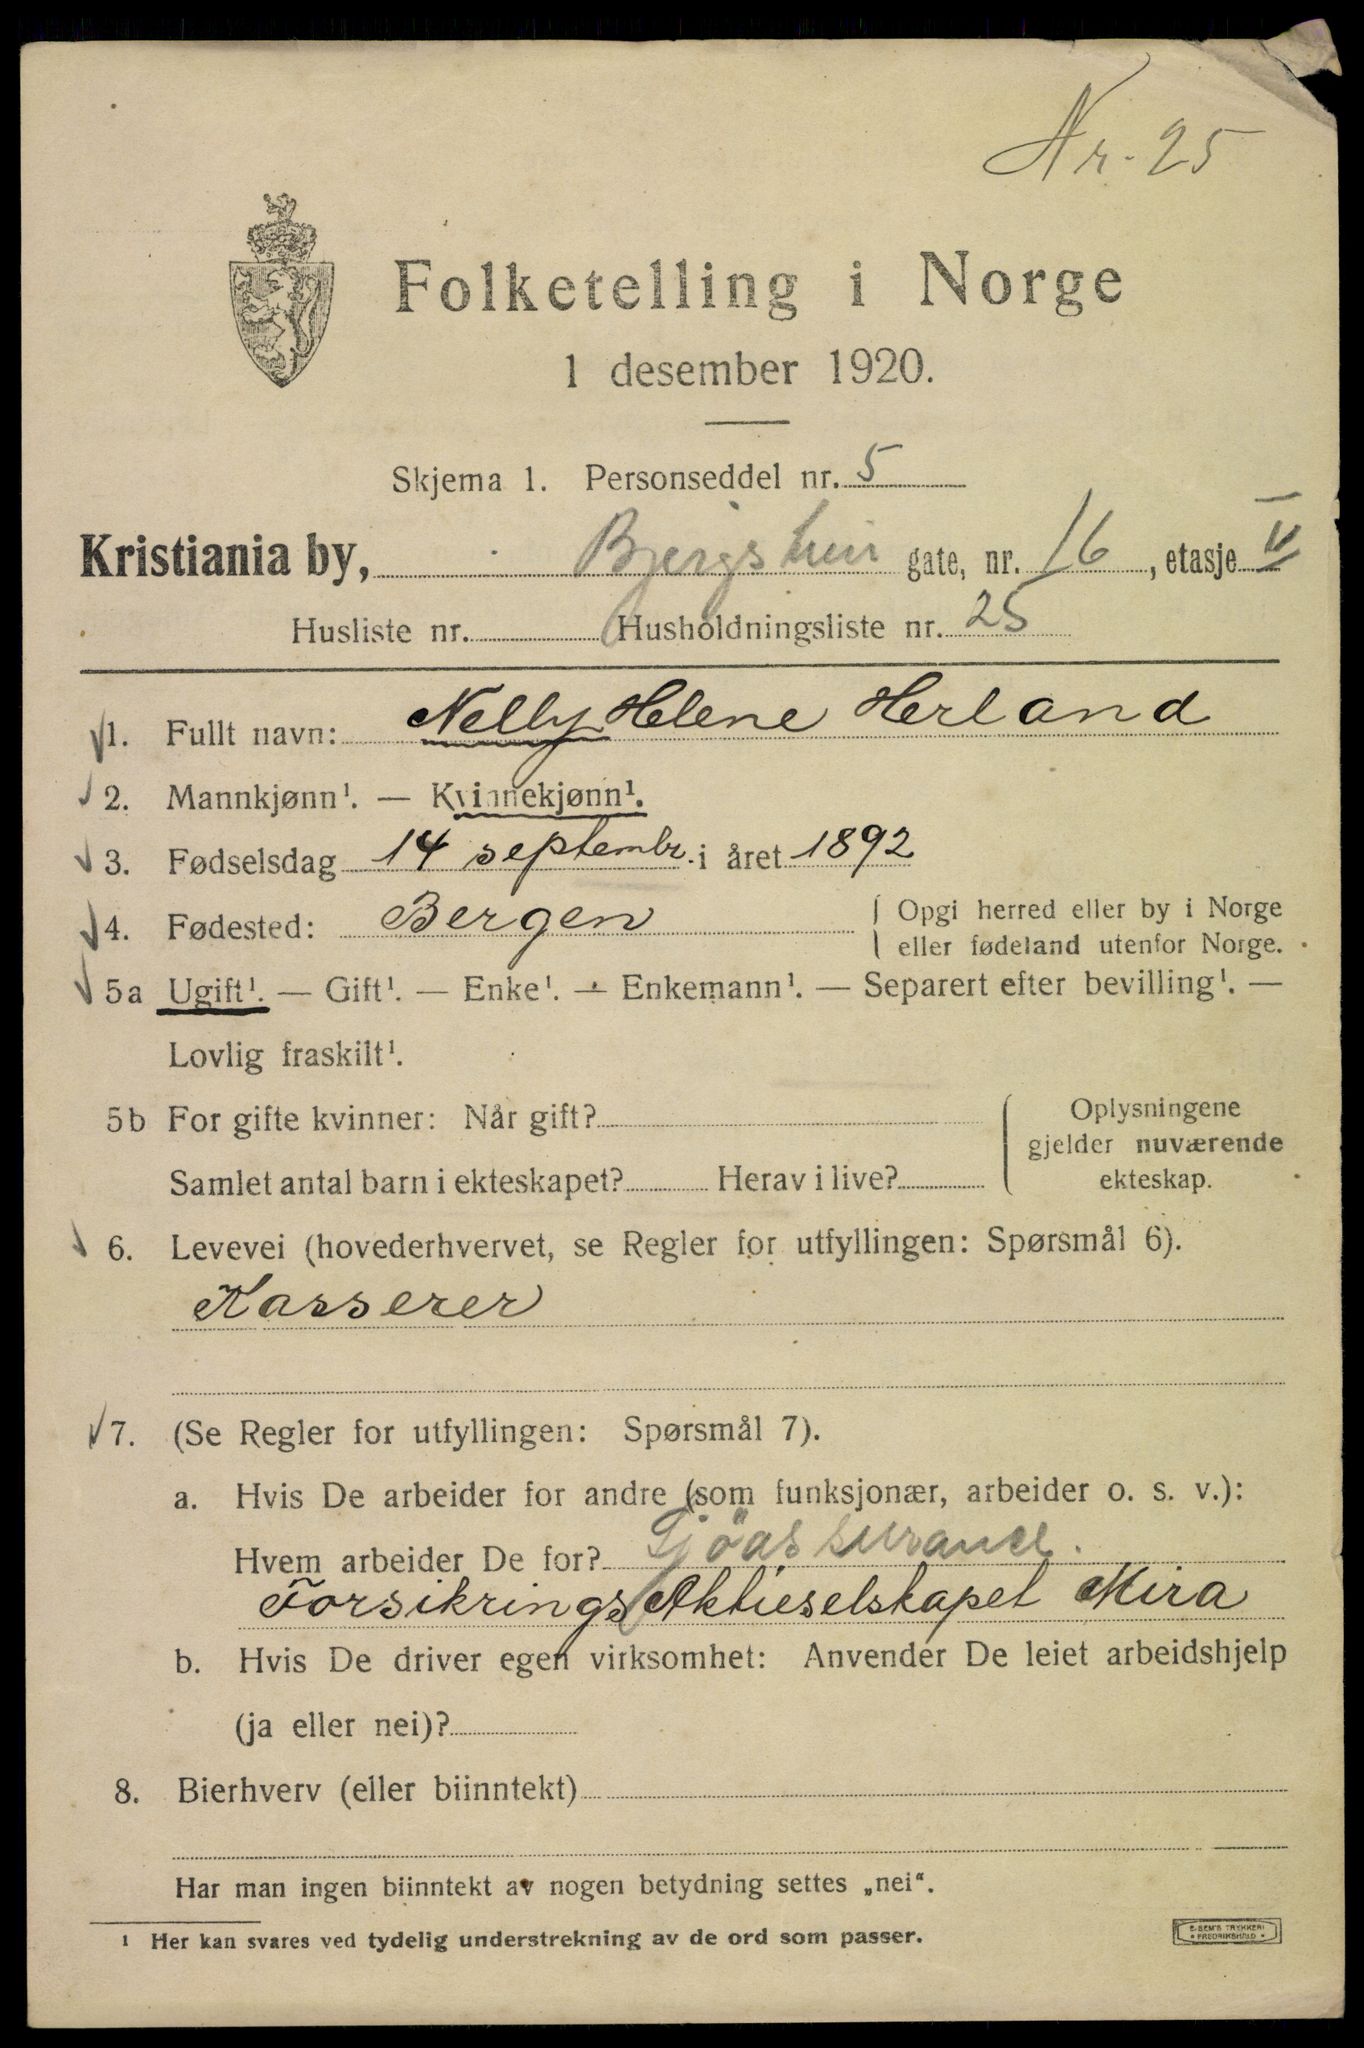 Nr. 25
Folketelling i Norge
1 desember 1920.
Skjema 1. Personseddel nr. 5
Kristiania by, Bjergslien gate, nr. 16, etasje II
Husliste nr. Husholdningsliste nr. 25
1. Fullt navn: Nelly Helene Herland
2. Mannkjønn¹. — Kvinnekjønn¹.
3. Fødselsdag 14 septembr. i året 1892
4. Fødested: Bergen
Opgi herred eller by i Norge
eller fødeland utenfor Norge.
5a Ugift¹. — Gift¹. — Enke¹. — Enkemann¹. — Separert efter bevilling¹. —
Lovlig fraskilt¹.
5b For gifte kvinner: Når gift?
Samlet antal barn i ekteskapet? Herav i live?
Oplysningene
gjelder nuværende
ekteskap.
6. Levevei (hovederhvervet, se Regler for utfyllingen: Spørsmål 6).
Kasserer
7. (Se Regler for utfyllingen: Spørsmål 7).
a. Hvis De arbeider for andre (som funksjonær, arbeider o. s. v.):
Hvem arbeider De for? Sjöassurance.
Forsikrings Aktieselskapet Mira
b. Hvis De driver egen virksomhet: Anvender De leiet arbeidshjelp
(ja eller nei)?
8. Bierhverv (eller biinntekt)
Har man ingen biinntekt av nogen betydning settes „nei“.
¹ Her kan svares ved tydelig understrekning av de ord som passer.
E. SEM'S TRYKKERI
FREDRIKSHALD